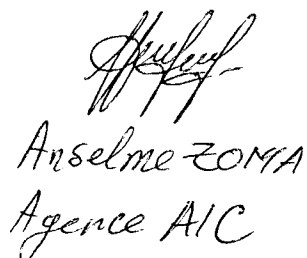 Anselme ZOMA
Agence AIC